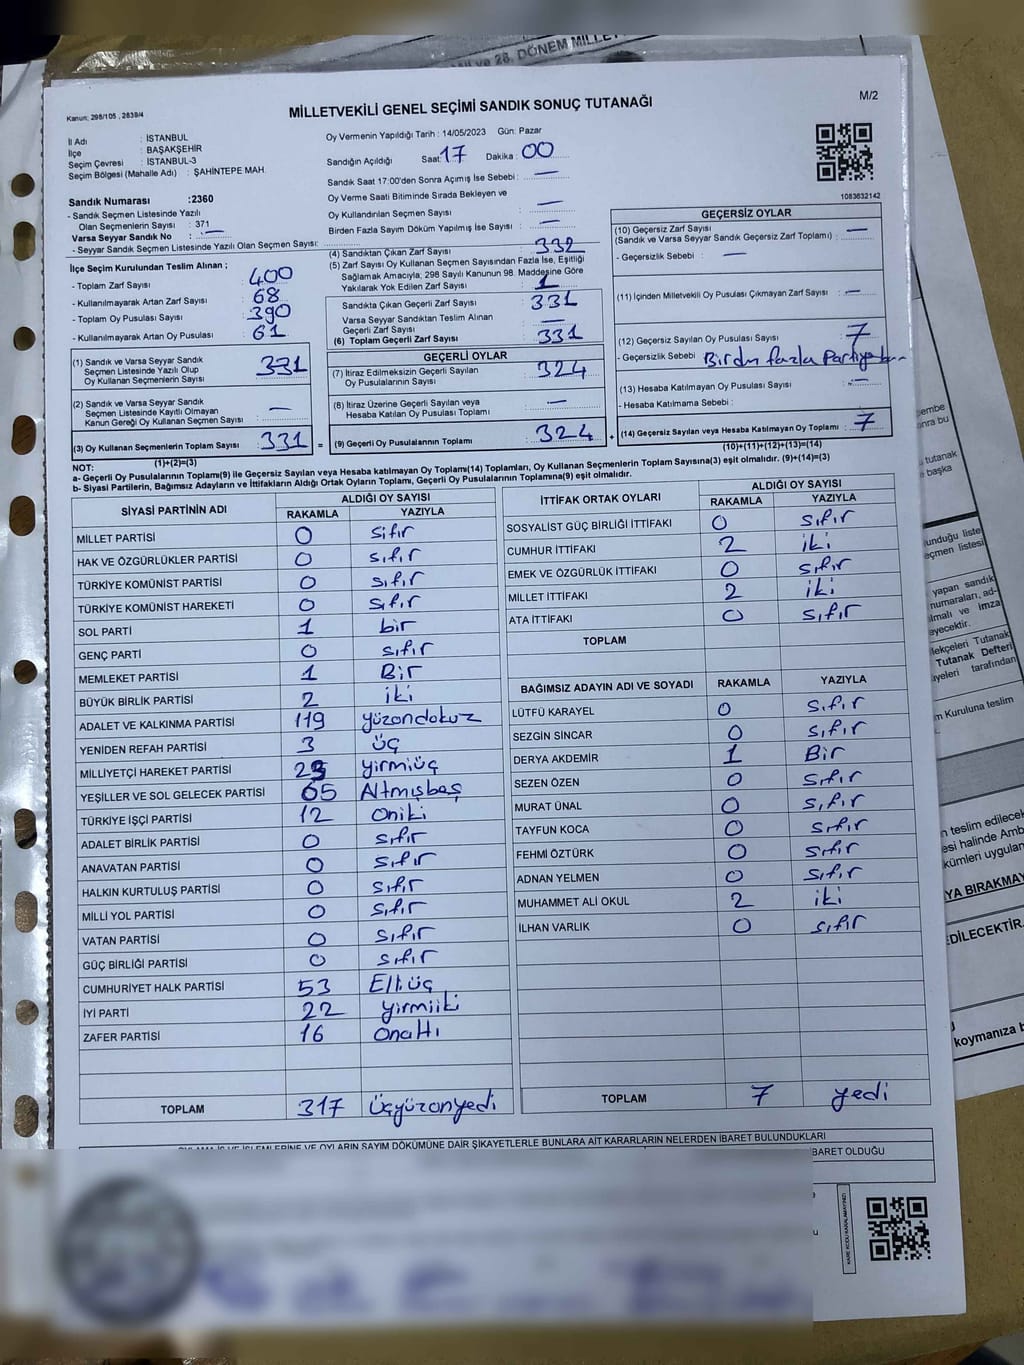 28. DÖNEM MİLLET
M/2
Kanun: 298/105 , 2839/4
MİLLETVEKİLİ GENEL SEÇİMİ SANDIK SONUÇ TUTANAĞI
İl Adı : İSTANBUL
İlçe : BAŞAKŞEHİR
Seçim Çevresi : İSTANBUL-3
Seçim Bölgesi (Mahalle Adı) : ŞAHİNTEPE MAH.
Sandık Numarası :2360
- Sandık Seçmen Listesinde Yazılı
Olan Seçmenlerin Sayısı : 371
Varsa Seyyar Sandık No : —
- Seyyar Sandık Seçmen Listesinde Yazılı Olan Seçmen Sayısı:
Oy Vermenin Yapıldığı Tarih : 14/05/2023 Gün: Pazar
Sandığın Açıldığı Saat: 17 Dakika : 00
Sandık Saat 17:00'den Sonra Açımış İse Sebebi : —
Oy Verme Saati Bitiminde Sırada Bekleyen ve
Oy Kullandırılan Seçmen Sayısı —
Birden Fazla Sayım Döküm Yapılmış İse Sayısı : —
1083632142
İlçe Seçim Kurulundan Teslim Alınan ;
- Toplam Zarf Sayısı : 400
- Kullanılmayarak Artan Zarf Sayısı : 68
- Toplam Oy Pusulası Sayısı : 390
- Kullanılmayarak Artan Oy Pusulası : 61
(1) Sandık ve Varsa Seyyar Sandık
Seçmen Listesinde Yazılı Olup
Oy Kullanan Seçmenlerin Sayısı : 331
(2) Sandık ve Varsa Seyyar Sandık
Seçmen Listesinde Kayıtlı Olmayan
Kanun Gereği Oy Kullanan Seçmen Sayısı : —
(3) Oy Kullanan Seçmenlerin Toplam Sayısı : 331 =
(1)+(2)=(3)
(4) Sandıktan Çıkan Zarf Sayısı : 332
(5) Zarf Sayısı Oy Kullanan Seçmen Sayısından Fazla İse, Eşitliği
Sağlamak Amacıyla; 298 Sayılı Kanunun 98. Maddesine Göre
Yakılarak Yok Edilen Zarf Sayısı : 1
Sandıkta Çıkan Geçerli Zarf Sayısı : 331
Varsa Seyyar Sandıktan Teslim Alınan
Geçerli Zarf Sayısı : —
(6) Toplam Geçerli Zarf Sayısı : 331
GEÇERLİ OYLAR
(7) İtiraz Edilmeksizin Geçerli Sayılan
Oy Pusulalarının Sayısı : 324
(8) İtiraz Üzerine Geçerli Sayılan veya
Hesaba Katılan Oy Pusulası Toplamı : —
(9) Geçerli Oy Pusulalarının Toplamı : 324 +
GEÇERSİZ OYLAR
(10) Geçersiz Zarf Sayısı : —
(Sandık ve Varsa Seyyar Sandık Geçersiz Zarf Toplamı)
- Geçersizlik Sebebi : —
(11) İçinden Milletvekili Oy Pusulası Çıkmayan Zarf Sayısı : —
(12) Geçersiz Sayılan Oy Pusulası Sayısı : 7
- Geçersizlik Sebebi : Birdn fazla Partiye
(13) Hesaba Katılmayan Oy Pusulası Sayısı : —
- Hesaba Katılmama Sebebi :
(14) Geçersiz Sayılan veya Hesaba Katılmayan Oy Toplamı : 7
(10)+(11)+(12)+(13)=(14)
NOT:
a- Geçerli Oy Pusulalarının Toplamı(9) ile Geçersiz Sayılan veya Hesaba katılmayan Oy Toplam(14) Toplamları, Oy Kullanan Seçmenlerin Toplam Sayısına(3) eşit olmalıdır. (9)+(14)=(3)
b- Siyasi Partilerin, Bağımsız Adayların ve İttifakların Aldığı Ortak Oyların Toplamı, Geçerli Oy Pusulalarının Toplamına(9) eşit olmalıdır.
SİYASİ PARTİNİN ADI ALDIĞI OY SAYISI
RAKAMLA YAZIYLA
MİLLET PARTİSİ 0 sıfır
HAK VE ÖZGÜRLÜKLER PARTİSİ 0 sıfır
TÜRKİYE KOMÜNİST PARTİSİ 0 sıfır
TÜRKİYE KOMÜNİST HAREKETİ 0 sıfır
SOL PARTİ 1 bir
GENÇ PARTİ 0 sıfır
MEMLEKET PARTİSİ 1 Bir
BÜYÜK BİRLİK PARTİSİ 2 iki
ADALET VE KALKINMA PARTİSİ 119 yüzondokuz
YENİDEN REFAH PARTİSİ 3 üç
MİLLİYETÇİ HAREKET PARTİSİ 23 yirmiüç
YEŞİLLER VE SOL GELECEK PARTİSİ 65 Altmışbeş
TÜRKİYE İŞÇİ PARTİSİ 12 oniki
ADALET BİRLİK PARTİSİ 0 sıfır
ANAVATAN PARTİSİ 0 sıfır
HALKIN KURTULUŞ PARTİSİ 0 sıfır
MİLLİ YOL PARTİSİ 0 sıfır
VATAN PARTİSİ 0 sıfır
GÜÇ BİRLİĞİ PARTİSİ 0 sıfır
CUMHURİYET HALK PARTİSİ 53 Elliüç
İYİ PARTİ 22 yirmiiki
ZAFER PARTİSİ 16 onaltı
TOPLAM 317 Üçyüzonyedi
İTTİFAK ORTAK OYLARI ALDIĞI OY SAYISI
RAKAMLA YAZIYLA
SOSYALİST GÜÇ BİRLİĞİ İTTİFAKI 0 sıfır
CUMHUR İTTİFAKI 2 iki
EMEK VE ÖZGÜRLÜK İTTİFAKI 0 sıfır
MİLLET İTTİFAKI 2 iki
ATA İTTİFAKI 0 sıfır
TOPLAM
BAĞIMSIZ ADAYIN ADI VE SOYADI RAKAMLA YAZIYLA
LÜTFÜ KARAYEL 0 sıfır
SEZGİN SİNCAR 0 sıfır
DERYA AKDEMİR 1 Bir
SEZEN ÖZEN 0 sıfır
MURAT ÜNAL 0 sıfır
TAYFUN KOCA 0 sıfır
FEHMİ ÖZTÜRK 0 sıfır
ADNAN YELMEN 0 sıfır
MUHAMMET ALİ OKUL 2 iki
İLHAN VARLIK 0 sıfır
TOPLAM 7 yedi
OYLAMA İŞ VE İŞLEMLERİNE VE OYLARIN SAYIM DÖKÜMÜNE DAİR ŞİKAYETLERLE BUNLARA AİT KARARLARIN NELERDEN İBARET BULUNDUKLARI
BARET OLDUĞU
KARE KODU KARALAMAYINIZ!
tutanak
başka
unduğu liste
eçmen listesi
yapan sandık
numaraları, ad-
ılmalı ve imza
eyecektir.
lekçeleri Tutanak
Tutanak Defteri
yeleri tarafından
m Kuruluna teslim
n teslim edilecek
esi halinde Amb
kümleri uygulan
YA BIRAKMAY
EDİLECEKTİR.
koymanıza b